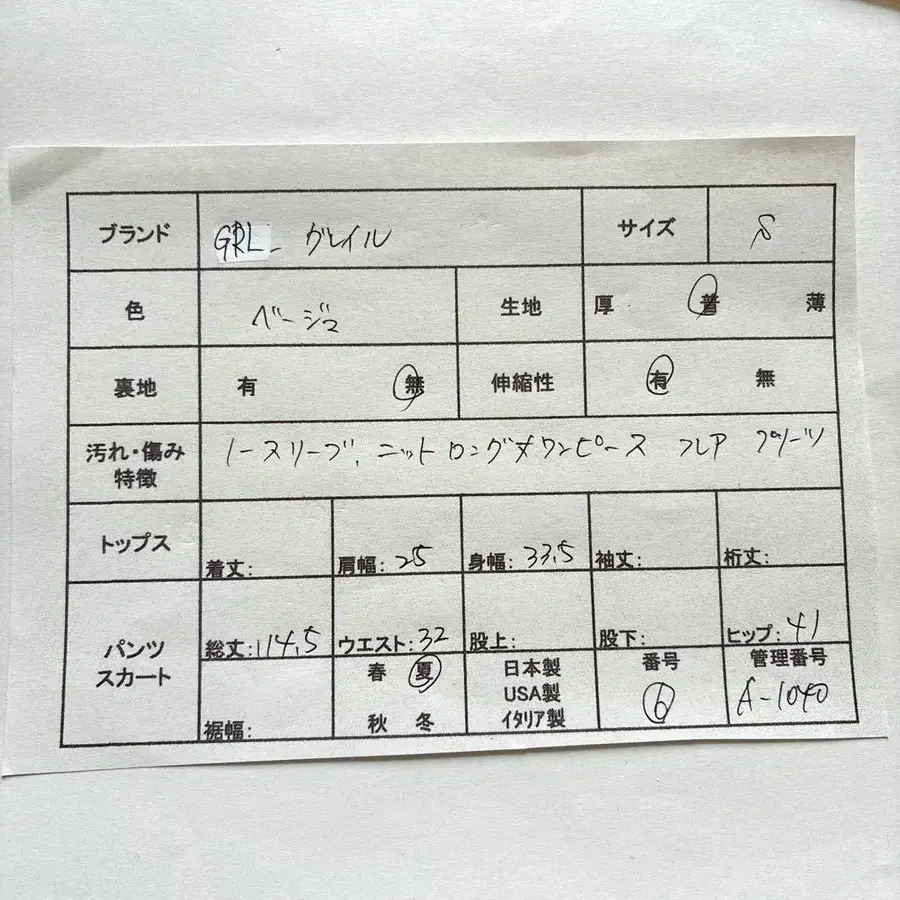 ブランド GRL グレイル サイズ S
色 ベージュ 生地 厚 普 薄
裏地 有 無 伸縮性 有 無
汚れ・傷み
特徴
ノースリーブ、ニット ロング丈ワンピース フレア プリーツ
トップス 着丈: 肩幅: 25 身幅: 33.5 袖丈: 裄丈:
パンツ
スカート
総丈: 114.5 ウエスト: 32 股上: 股下: ヒップ: 41
裾幅:
春 夏
秋 冬
日本製
USA製
イタリア製
番号
6
管理番号
A-1040